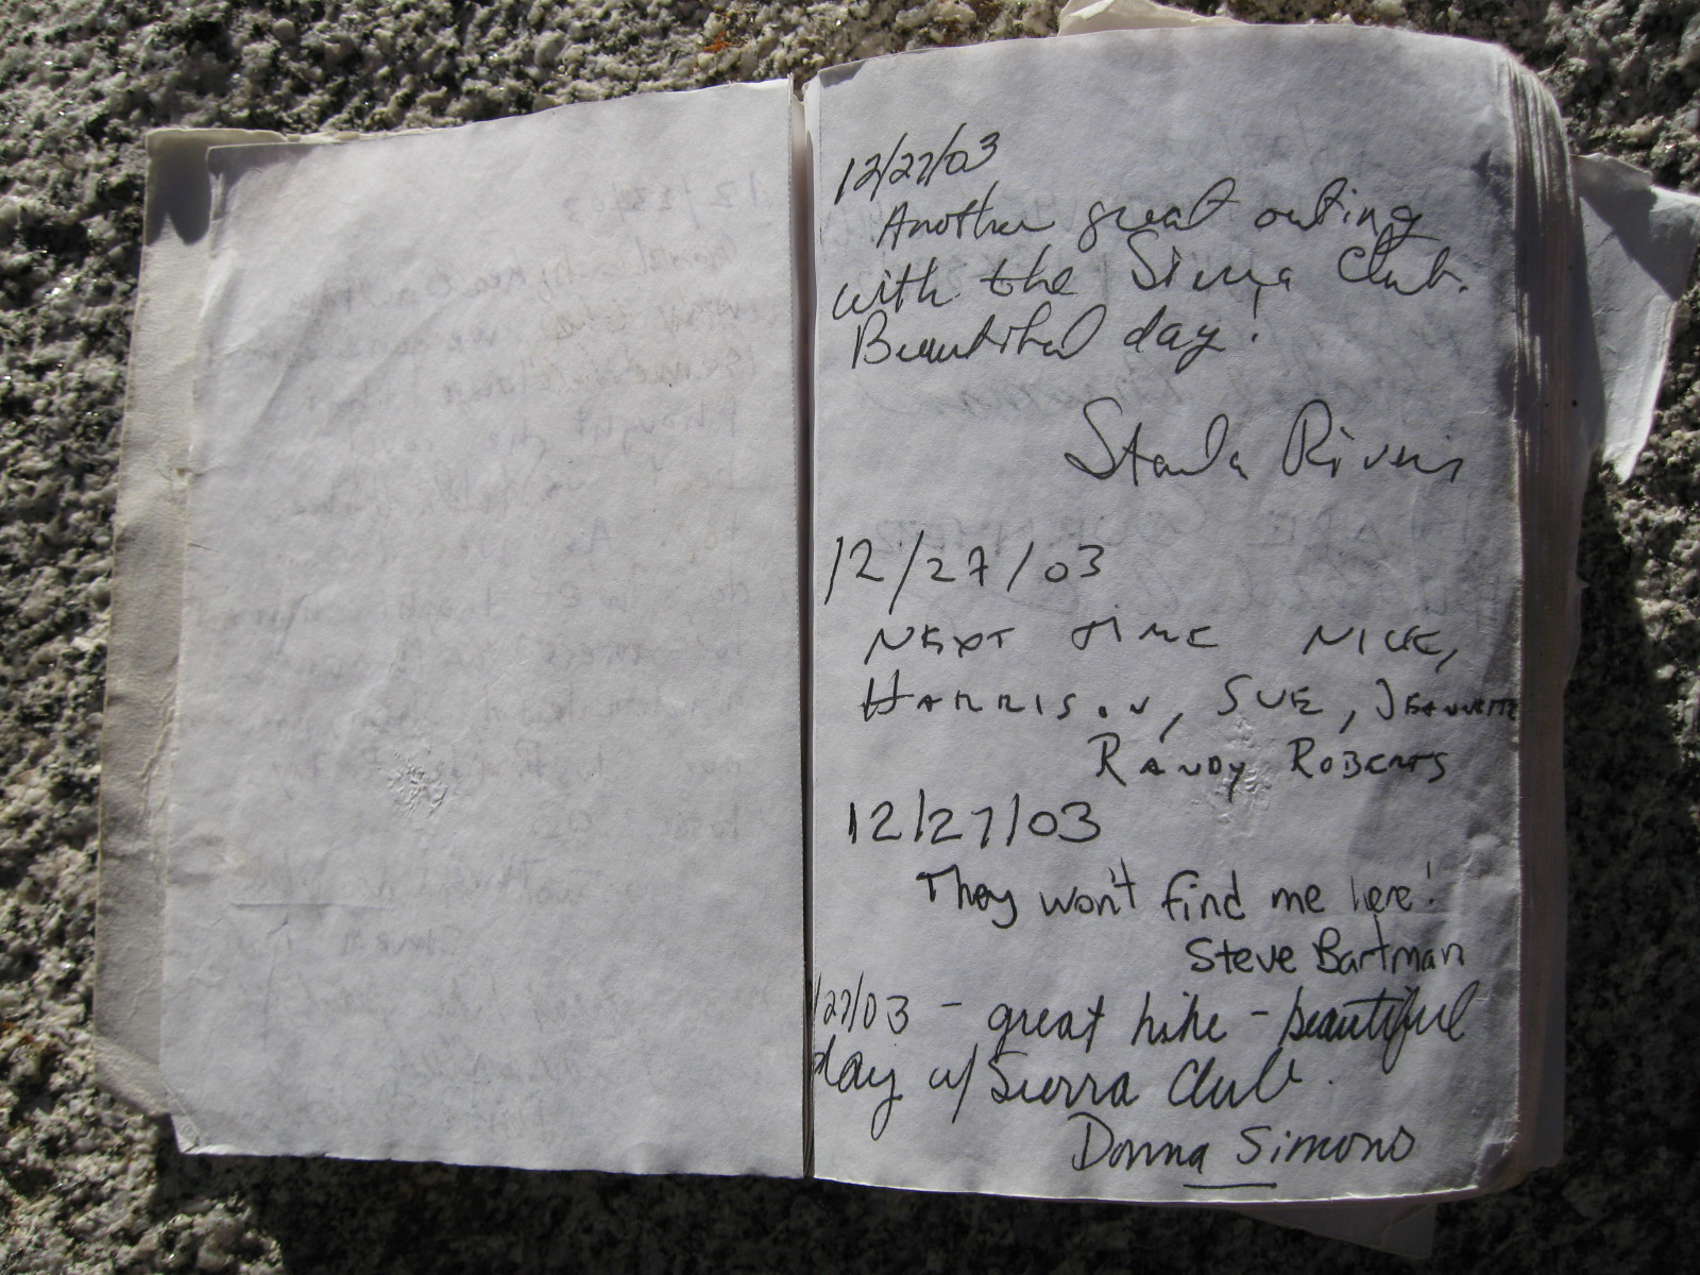 12/27/03
Another great outing
with the Sierra Club.
Beautiful day!
Rivers
12/27/03
NEXT TIME
HARRISON, SUE, JEANNETTE
RANDY ROBERTS
12/27/03
They won't find me here!
Steve Bartman
/27/03 - great hike - beautiful
day w/ Sierra Club.
Donna Simons